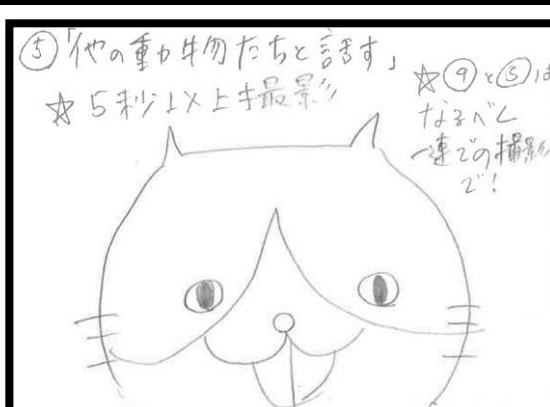 ⑤「他の動物たちと話す」
☆5秒以上撮影
☆⑨と⑤は
なるべく
一連での撮影
で！